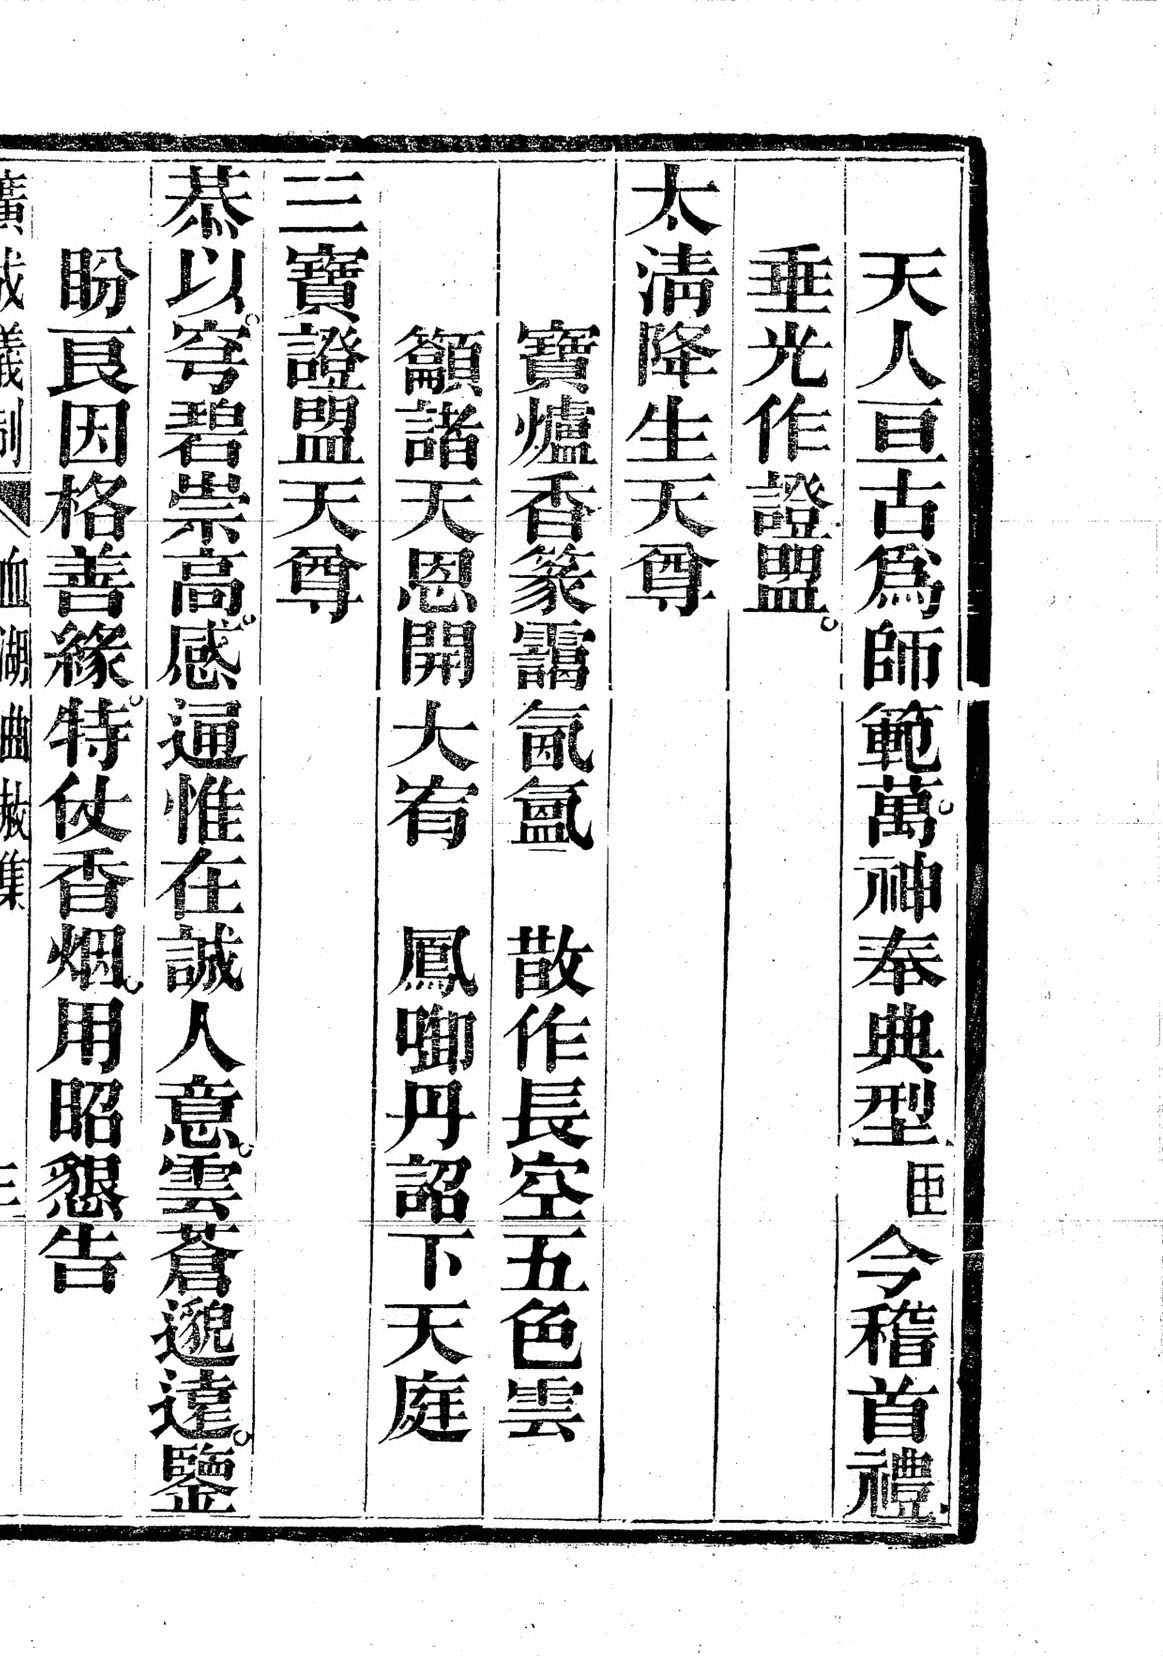 天人亘古爲師範萬神奉典型臣今稽首禮
垂光作證盟
太淸降生天尊
寶爐香篆靄氤氳　散作長空五色雲
籲諸天恩開大宥　鳳啣丹詔下天庭
三寶證盟天尊
恭以穹碧崇高感通惟在誠人意雲蒼邈遠鑒
盼良因格善緣特仗香烟用昭懇告
廣成儀制 血湖曲赦集 三